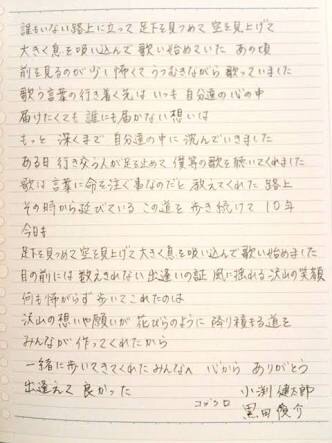 誰もいない路上に立って 足下を見つめて 空を見上げて
大きく息を吸い込んで 歌い始めていた あの頃
前を見るのが少し怖くて うつむきながら 歌っていました
歌う言葉の行き着く先は いつも 自分達の心の中
届けたくても 誰にも届かない想いは
もっと 深くまで 自分達の中に 沈んでいきました
ある日 行き交う人が足を止めて 僕等の歌を聴いてくれました
歌は言葉に命を注ぐ事なのだと 教えてくれた 路上
その時から延びている この道を 歩き続けて 10年
今日も
足下を見つめて空を見上げて 大きく息を吸い込んで歌い始めました
目の前には 数えきれない 出逢いの証 風に揺れる 沢山の笑顔
何も怖がらず 歩いてこれたのは
沢山の想いや願いが 花びらのように 降り積もる道を
みんなが 作ってくれたから
一緒に歩いてきてくれた みんなへ 心から ありがとう
出逢えて 良かった 小渕 健太郎
コブクロ 黒田 俊介